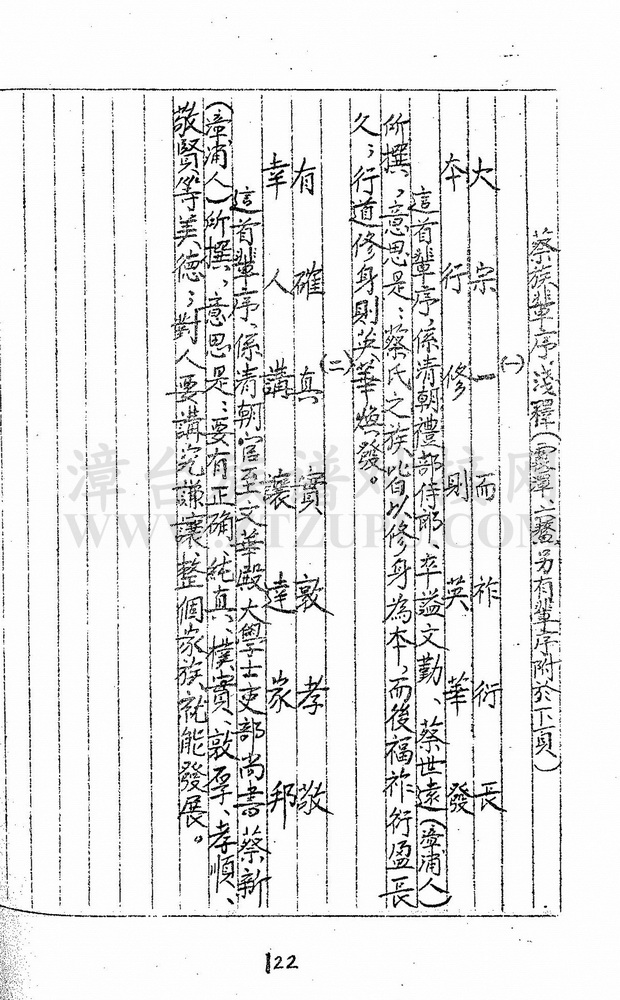 蔡族輩序淺釋（霞潭二鰲另有輩序附於下頁）
(一)
大宗一而祚衍長
本行修則英華發
這首輩序，係清朝禮部侍郎、卒謚文勤、蔡世遠（漳浦人）
所撰，意思是：蔡氏之族，皆以修身為本，而後福祚衍盈長
久；行道修身則英華煥發。
(二)
有確真實敦孝敬
幸人講讓達家邦
這首輩序，係清朝官至文華殿大學士吏部尚書蔡新
（漳浦人）所撰，意思是：要有正確、純真、樸實、敦厚、孝順、
敬賢等美德；對人要講究謙讓整個家族就能發展。
122
漳台族谱对接网
WWW.ZTZUPU.COM